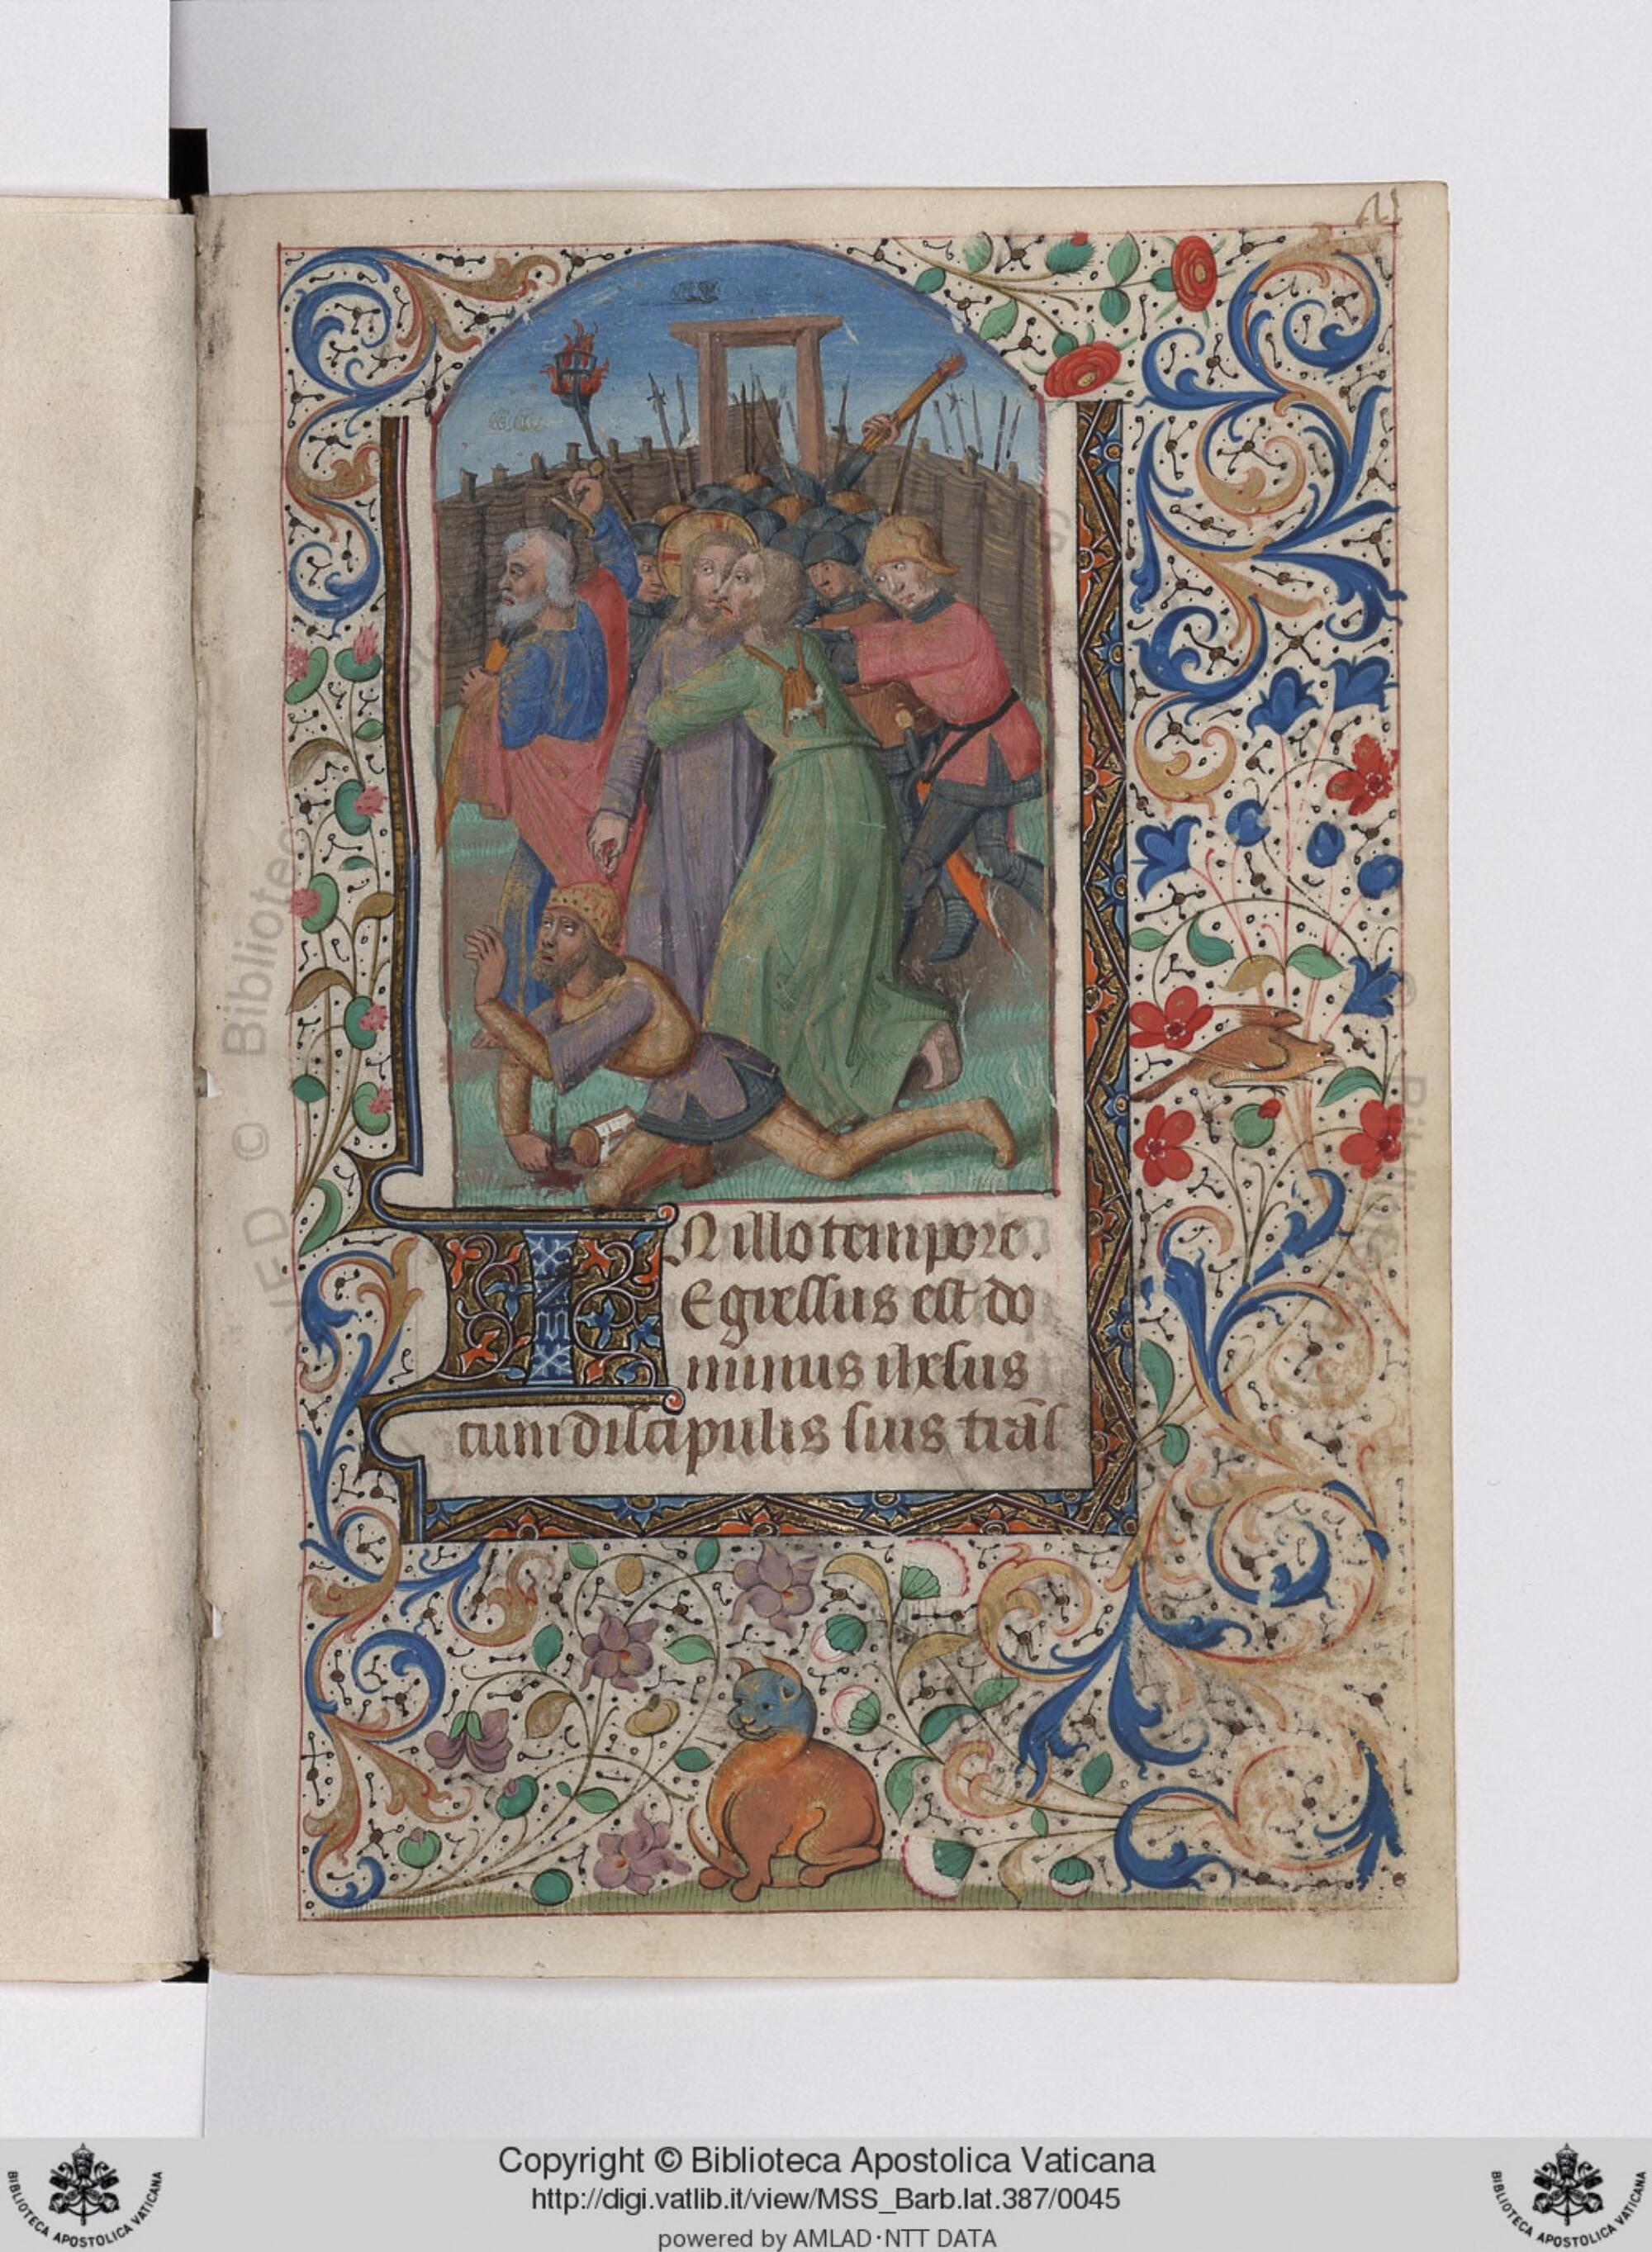 IN illo tempore.
Egressus est do
minus ihesus
cum discipulis suis trãs
Copyright © Biblioteca Apostolica Vaticana
http://digi.vatlib.it/view/MSS_Barb.lat.387/0045
powered by AMLAD·NTT DATA
BIBLIOTECA APOSTOLICA VATICANA
BIBLIOTECA APOSTOLICA VATICANA